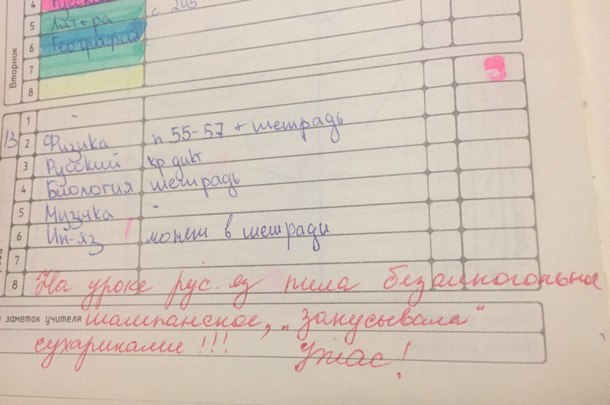 4 Русский
5 Лит-ра с 245
6 География
7
8
Вторник
1 -
13 2 Физика п 55-57 + тетрадь
3 Русский кр дикт
4 Биология тетрадь
5 Музыка -
6 Ин-яз может в тетради
7
8 На уроке рус. яз пила безалкогольное
заметок учителя шампанское, „закусывала"
сухариками!!! Ужас!